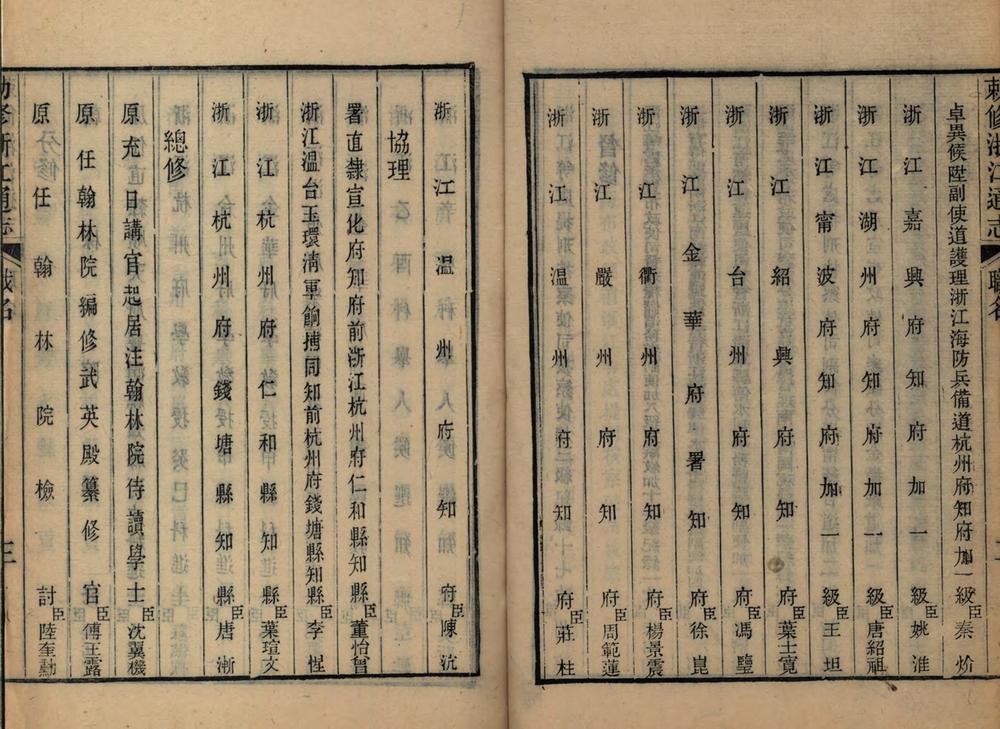 敕修浙江通志 職名 二
卓異候陞副使道護理浙江海防兵備道杭州府知府加一級臣秦炌
浙江嘉興府知府加一級臣姚淮
浙江湖州府知府加一級臣唐紹祖
浙江甯波府知府加一級臣王坦
浙江紹興府知府臣葉士寬
浙江台州府知府臣馮鑒
浙江金華府署知府臣徐崑
浙江衢州府知府臣楊景震
浙江嚴州府知府臣周範蓮
浙江溫州府知府臣莊柱
浙江溫州府知府臣陳沆
協理
署直隸宣化府知府前浙江杭州府仁和縣知縣臣董怡曾
浙江溫台玉環清軍餉捕同知前杭州府錢塘縣知縣臣李惺
浙江杭州府仁和縣知縣臣葉瑄文
浙江杭州府錢塘縣知縣臣唐漸
總修
原充日講官起居注翰林院侍讀學士臣沈翼機
原任翰林院編修武英殿纂修官臣傅王露
原任翰林院檢討臣陸奎勳
敕修浙江通志 職名 三